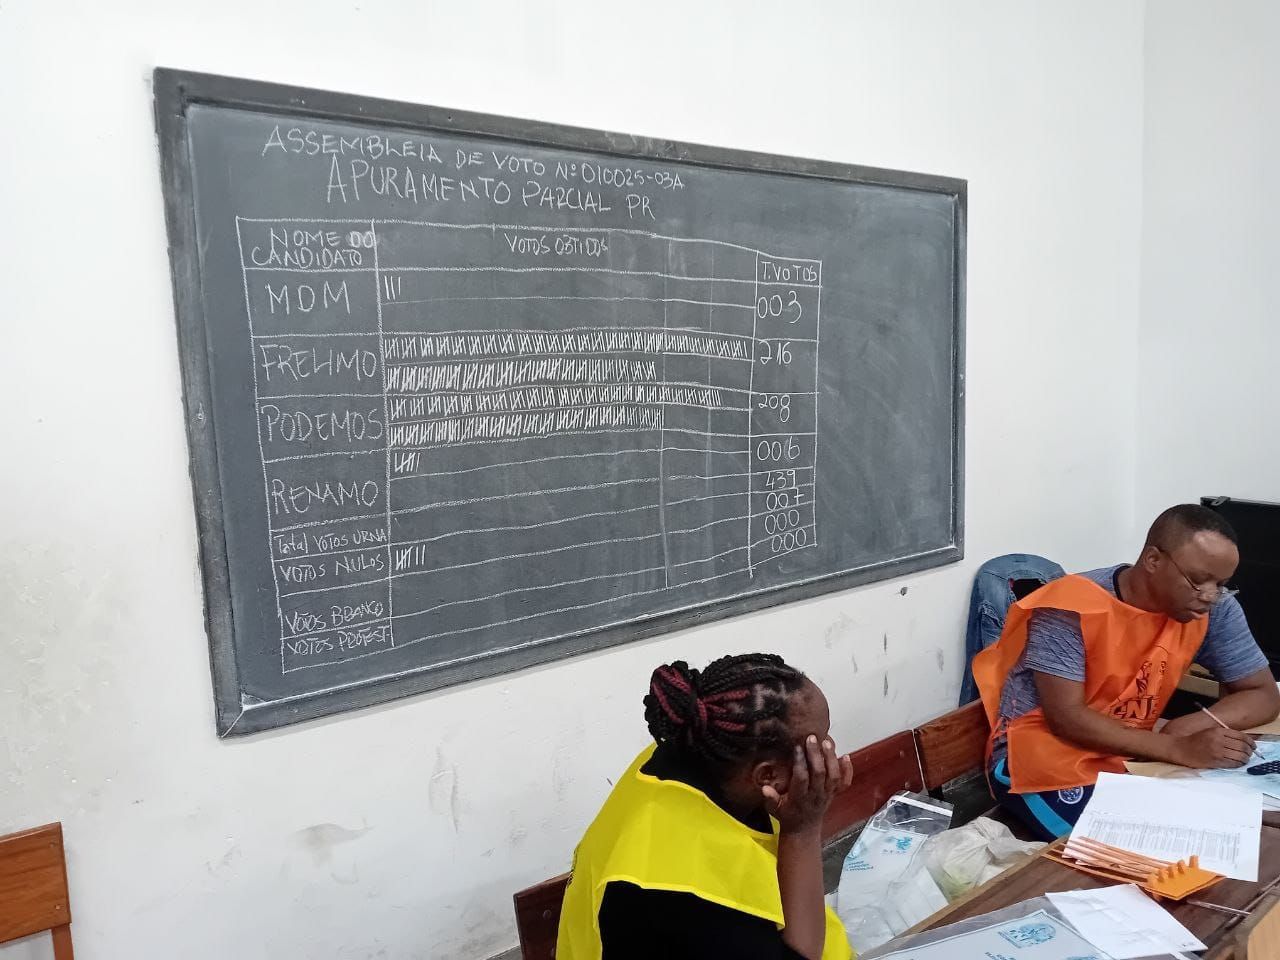 ASSEMBLEIA DE VOTO Nº 010025-03A
APURAMENTO PARCIAL PR
NOME DO CANDIDATO
VOTOS OBTIDOS
T.VOTOS
MDM
003
FRELIMO
216
PODEMOS
208
RENAMO
006
Total VOTOS URNA
439
VOTOS NULOS
007
VOTOS BRANCO
000
VOTOS PROTEST
000